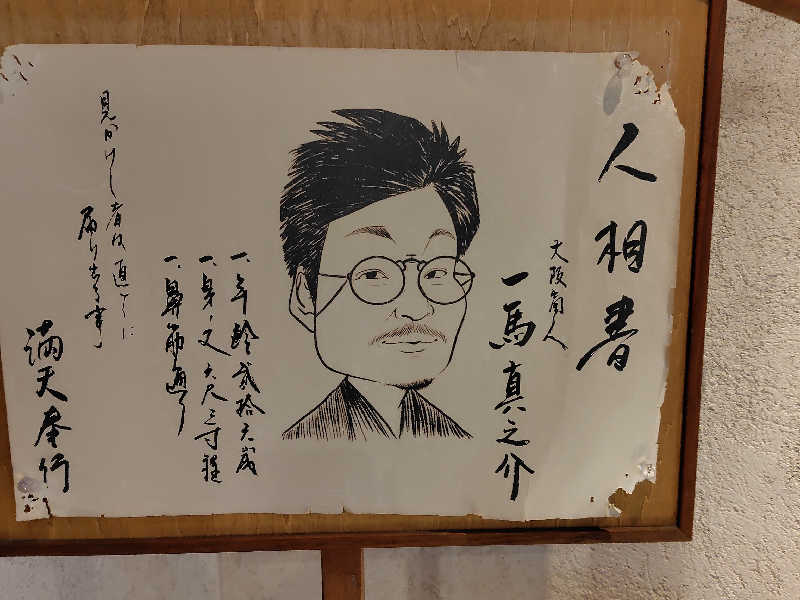 人相書
大阪商人
一馬真之介
一、年齢弐拾六歳
一、身ノ丈六尺三寸程
一、鼻筋通り
見かけし者は直ぐに
届け出る事
満天奉行